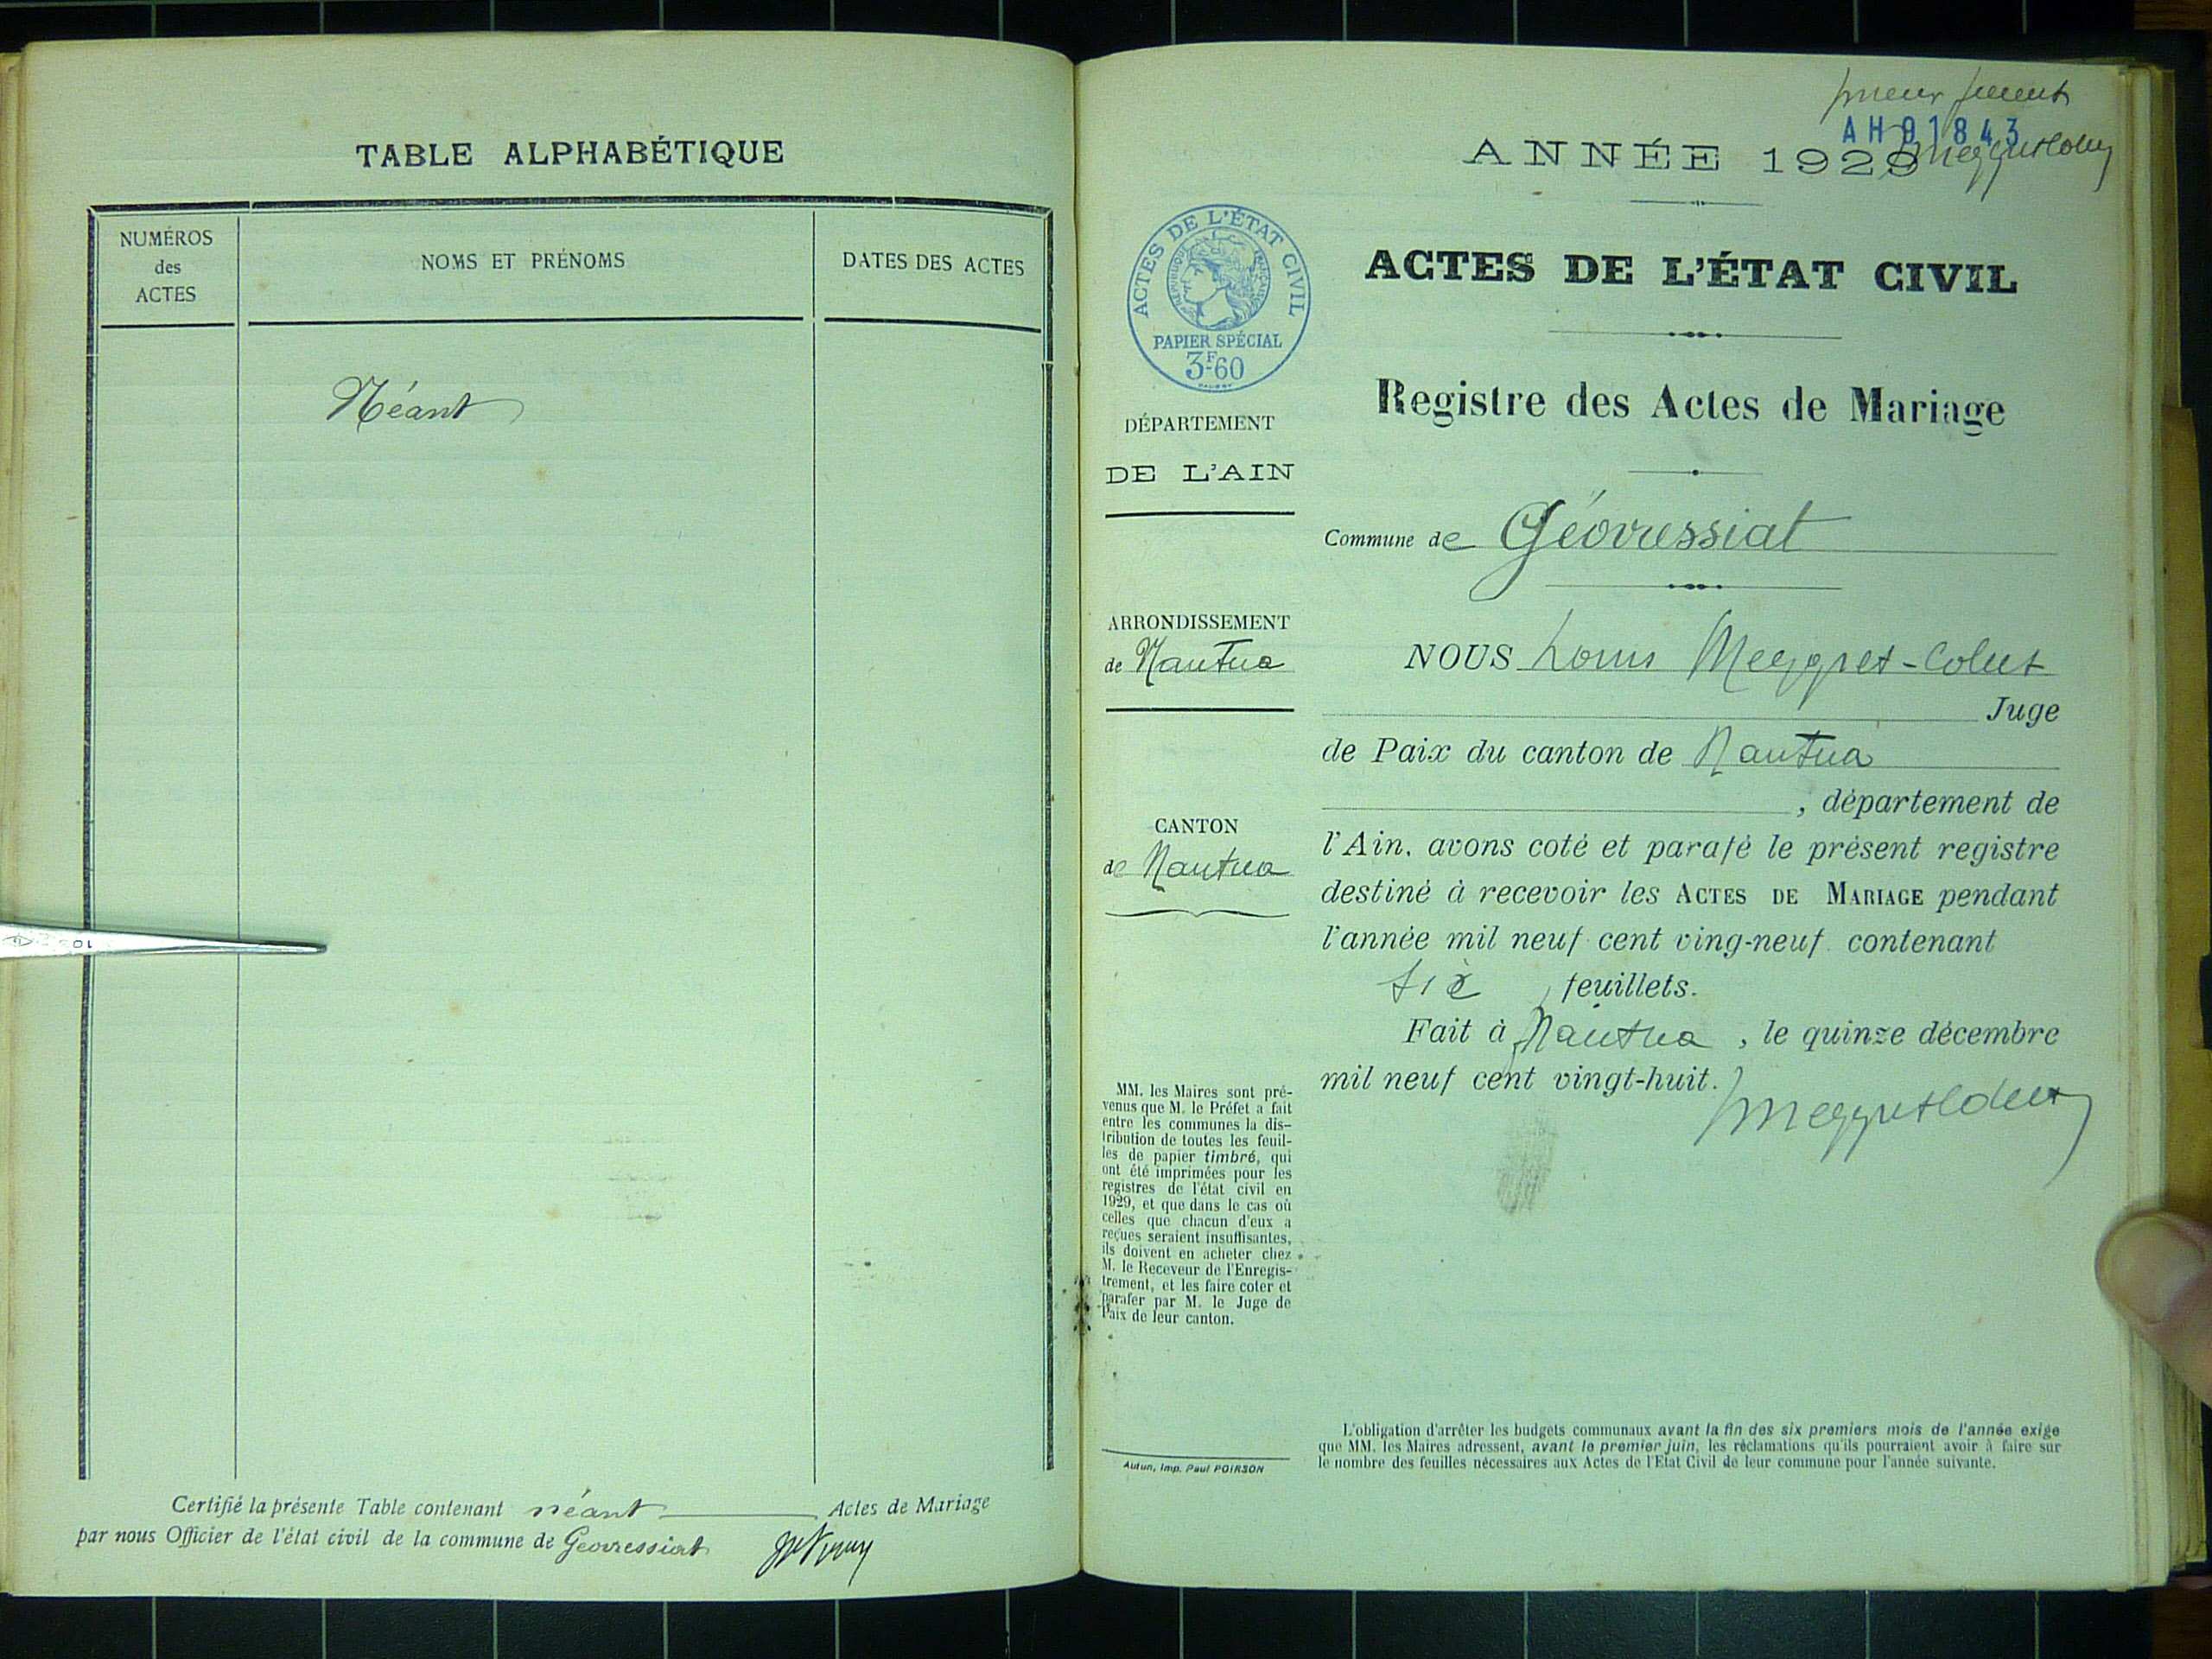 TABLE ALPHABÉTIQUE
NUMÉROS
des
ACTES
NOMS ET PRÉNOMS
DATES DES ACTES
Néant
Certifié la présente Table contenant néant Actes de Mariage
par nous Officier de l'état civil de la commune de Geovressiat
AH 01843
ANNÉE 1929
ACTES DE L'ÉTAT CIVIL
RÉPUBLIQUE FRANÇAISE
PAPIER SPÉCIAL
3F60
ACTES DE L'ÉTAT CIVIL
Registre des Actes de Mariage
DÉPARTEMENT
DE L'AIN
Commune de Géovressiat
ARRONDISSEMENT
de Nantua
CANTON
de Nantua
NOUS Louis Meygret-Collet
Juge
de Paix du canton de Nantua
, département de
l'Ain, avons coté et parafé le présent registre
destiné à recevoir les ACTES DE MARIAGE pendant
l'année mil neuf cent ving-neuf contenant
six feuillets.
Fait à Nantua, le quinze décembre
mil neuf cent vingt-huit.
MM. les Maires sont pré-
venus que M. le Préfet a fait
entre les communes la dis-
tribution de toutes les feuil-
les de papier timbré, qui
ont été imprimées pour les
registres de l'état civil en
1929, et que dans le cas où
celles que chacun d'eux a
reçues seraient insuffisantes,
ils doivent en acheter chez
M. le Receveur de l'Enregis-
trement, et les faire coter et
parafer par M. le Juge de
Paix de leur canton.
Autun, Imp. Paul POIRSON
L'obligation d'arrêter les budgets communaux avant la fin des six premiers mois de l'année exige
que MM. les Maires adressent, avant le premier juin, les réclamations qu'ils pourraient avoir à faire sur
le nombre des feuilles nécessaires aux Actes de l'Etat Civil de leur commune pour l'année suivante.